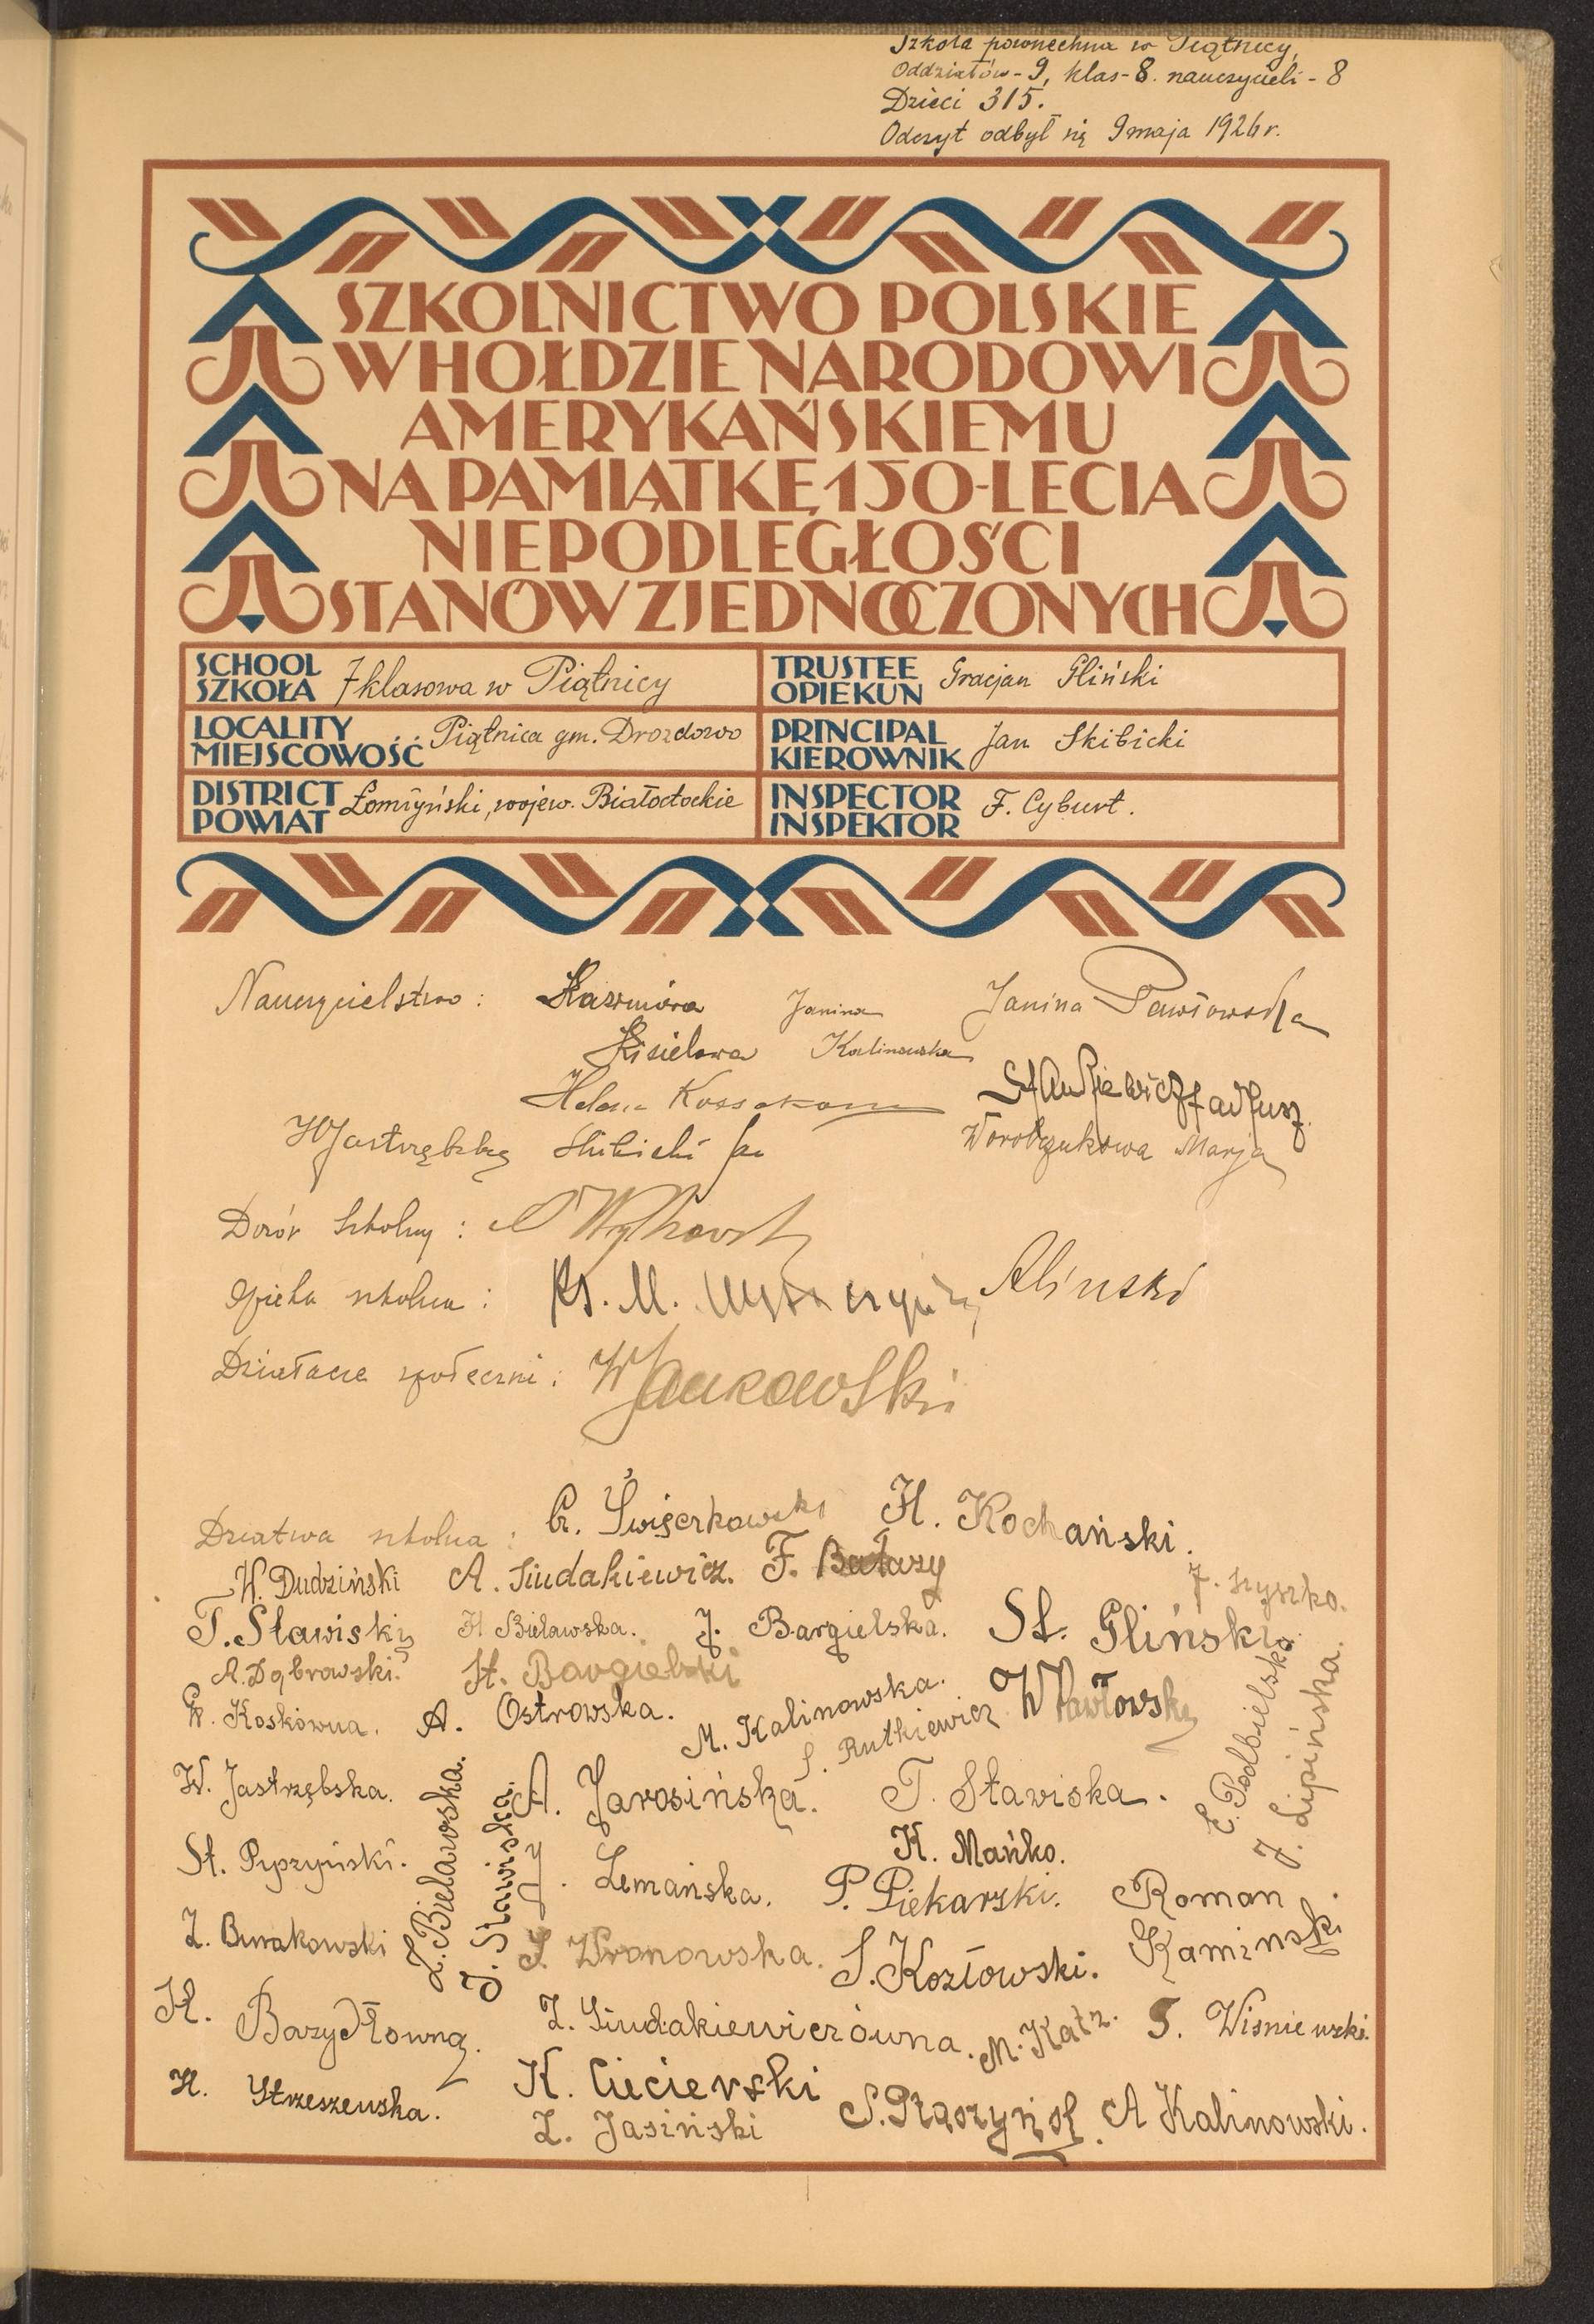 Szkoła powszechna w Piątnicy,
Oddziałów - 9, klas - 8. nauczycieli - 8
Dzieci 315.
Odczyt odbył się 9 maja 1926 r.
SZKOLNICTWO POLSKIE
W HOŁDZIE NARODOWI
AMERYKAŃSKIEMU
NA PAMIĄTKĘ 150-LECIA
NIEPODLEGŁOŚCI
STANÓW ZJEDNOCZONYCH
SCHOOL
SZKOŁA 7 klasowa w Piątnicy
TRUSTEE
OPIEKUN Gracjan Gliński
LOCALITY
MIEJSCOWOŚĆ Piątnica gm. Drozdowo
PRINCIPAL
KIEROWNIK Jan Skibicki
DISTRICT
POWIAT Łomżyński, wojew. Białostockie
INSPECTOR
INSPEKTOR F. Cyburt.
Nauczycielstwo: Kazimiera Janina Janina Pawłowska
Kisielowa Kalinowska
Helena
Stankiewicz Tadeusz
WJastrzębska Skibicki Jan Worobczukowa Marja
Dozór Szkolny:
Opieka szkolna: Ks. M. Gliński
Działacze społeczni: WJankowski
Dziatwa szkolna: Cz. Świerkowski H. Kochański.
W. Dudziński A. Siudakiewicz. F. Bałazy
J. Szyszko.
T. Stawiski H Bielawska. J. Bargielska. St. Gliński.
A. Dąbrowski. St. Bargielski
W. Koskówna. A. Ostrowska. M. Kalinowska.
S. Rutkiewicz W Pawłowski
E. Podbielska
J. Lipińska.
W. Jastrzębska.
Z. Bielawska.
J. Stawiska.
A. Jarosińska. T. Stawiska.
K. Mańko.
St. Pyszyński. Lemańska. P. Piekarski. Roman
Kaminski.
Z. Burakowski S. Wronowska. S. Kozłowski.
H. Bazydłowna. Z. Siudakiewiczówna. M. Katz. S. Wisniewski.
H. Strzeszewska. K. Ciecierski
Z. Jasiński S. Ptaszyńsk. A Kalinowski.